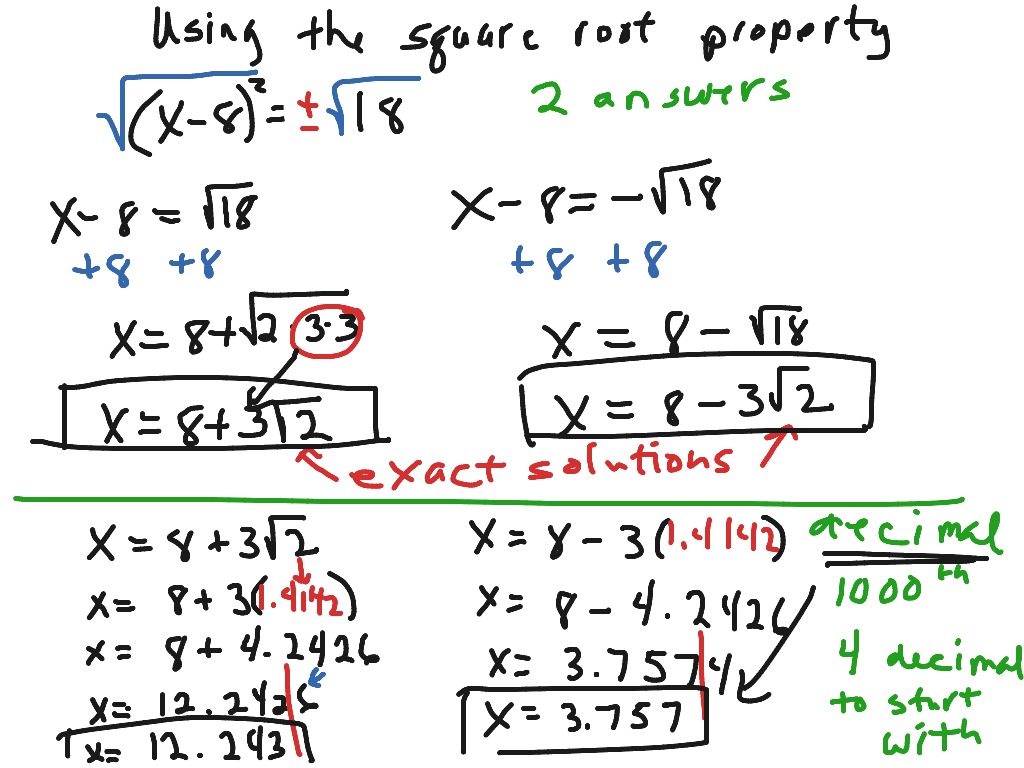 Using the square root property
√(x-8)² = ±√18
2 answers
x - 8 = √18
+8 +8
x = 8 + √2 · 3·3
x = 8 + 3√2
x - 8 = -√18
+8 +8
x = 8 - √18
x = 8 - 3√2
exact solutions
x = 8 + 3√2
x = 8 + 3(1.4142)
x = 8 + 4.2426
x = 12.2426
x = 12.243
x = 8 - 3(1.4142)
x = 8 - 4.2426
x = 3.7574
x = 3.757
decimal
1000th
4 decimal
to start
with